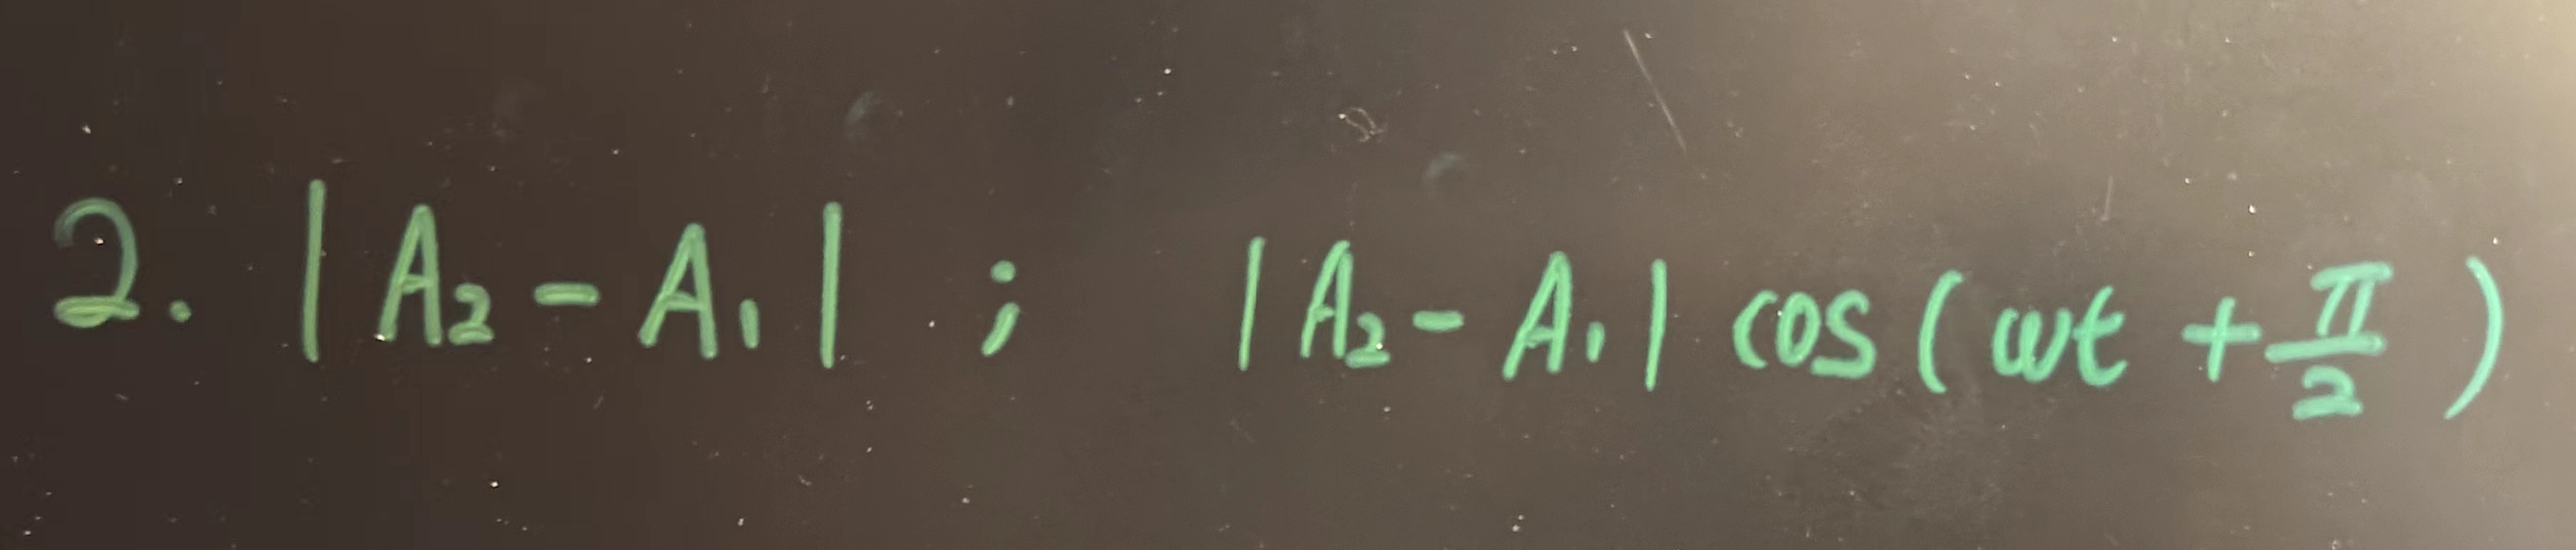 2. |A₂ - A₁| ; |A₂ - A₁| cos(ωt + π/2)